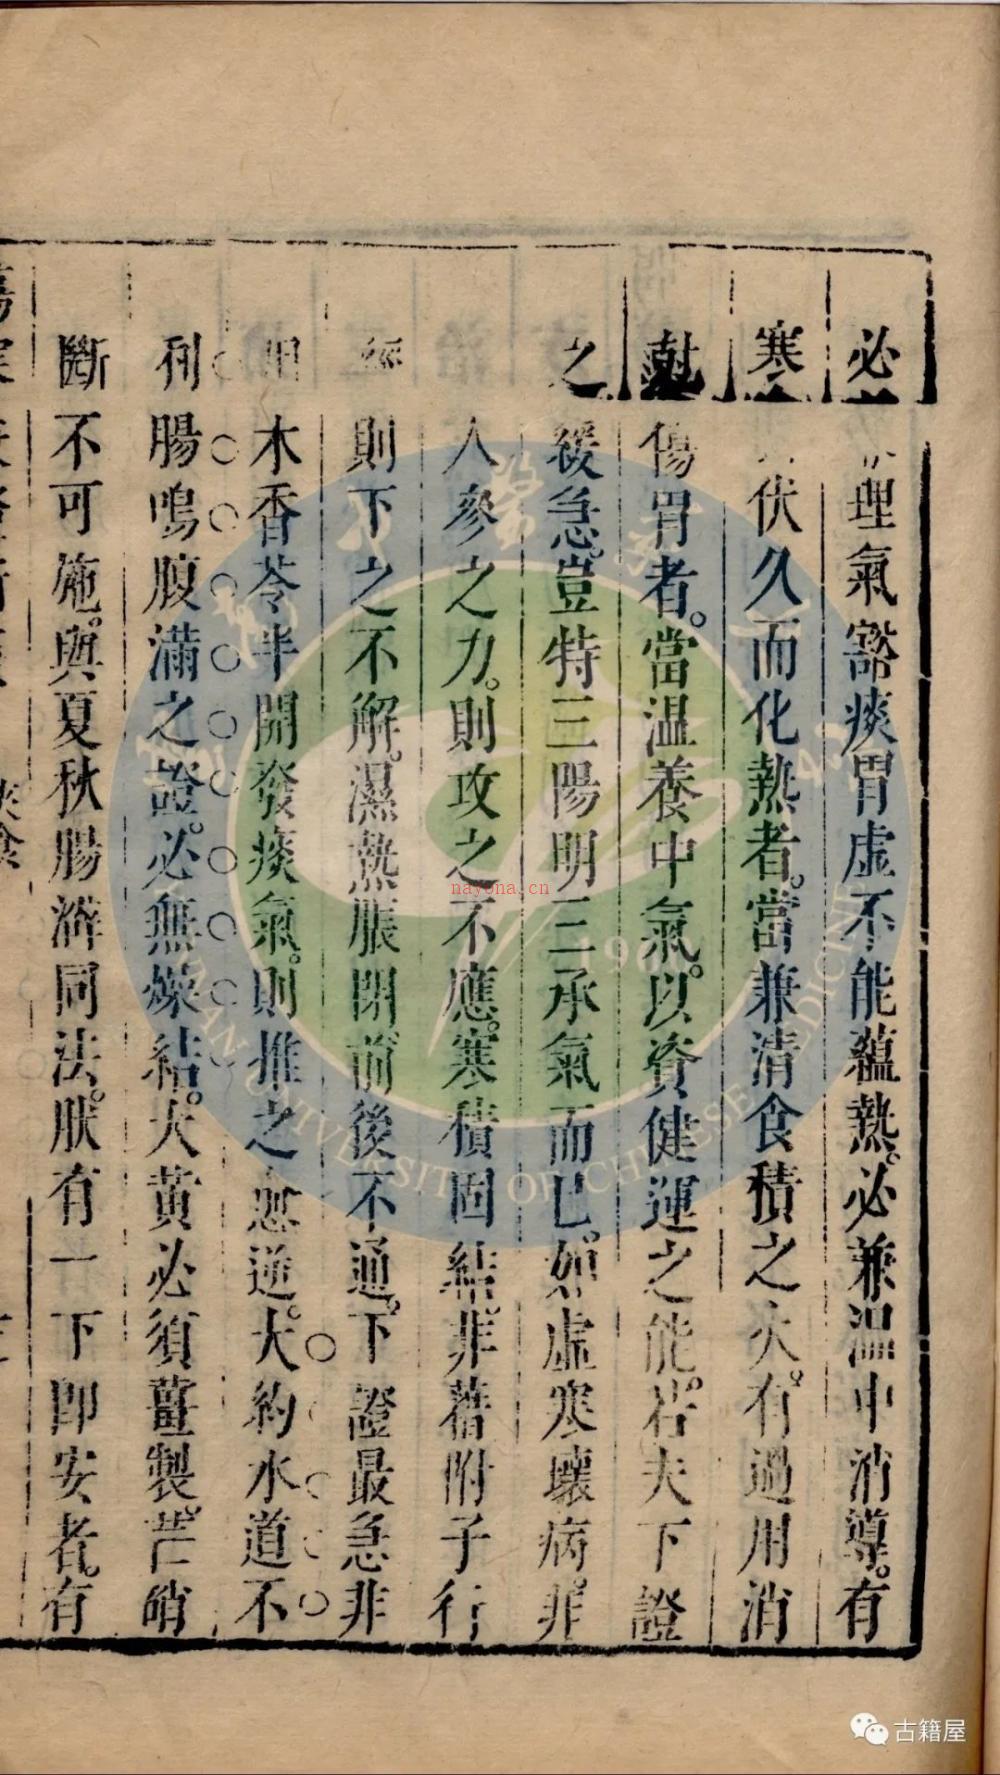 必理氣豁痰胃虛不能蘊熱必兼温中消導有
寒伏久而化熱者當兼清食積之火有過用消
傷胃者當温養中氣以資健運之能若夫下證
之緩急豈特三陽明三承氣而已如虛寒壞病非
人參之力則攻之不應寒積固結非藉附子行
則下之不解濕熱脹閉前後不通下證最急非
木香苓半開發痰氣則推之愈逆大約水道不
利腸鳴腹滿之證必無燥結大黄必須薑製芒硝
斷不可施與夏秋腸澼同法肰有一下即安者有
傷寒
挾食
nayona.cn
UNIVERSITY OF CHINESE MEDICINE
古籍屋